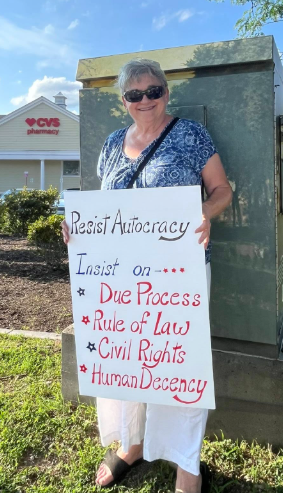 CVS
pharmacy
Resist Autocracy
Insist on
Due Process
Rule of Law
Civil Rights
Human Decency